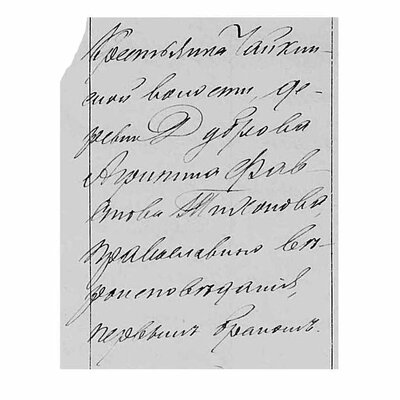 Крестьянина Чайкин-
ской волости, де-
ревни Дуброва
Агриппа Фав-
стова Тихонова,
православнаго вѣ-
роисповѣданія,
первымъ бракомъ.